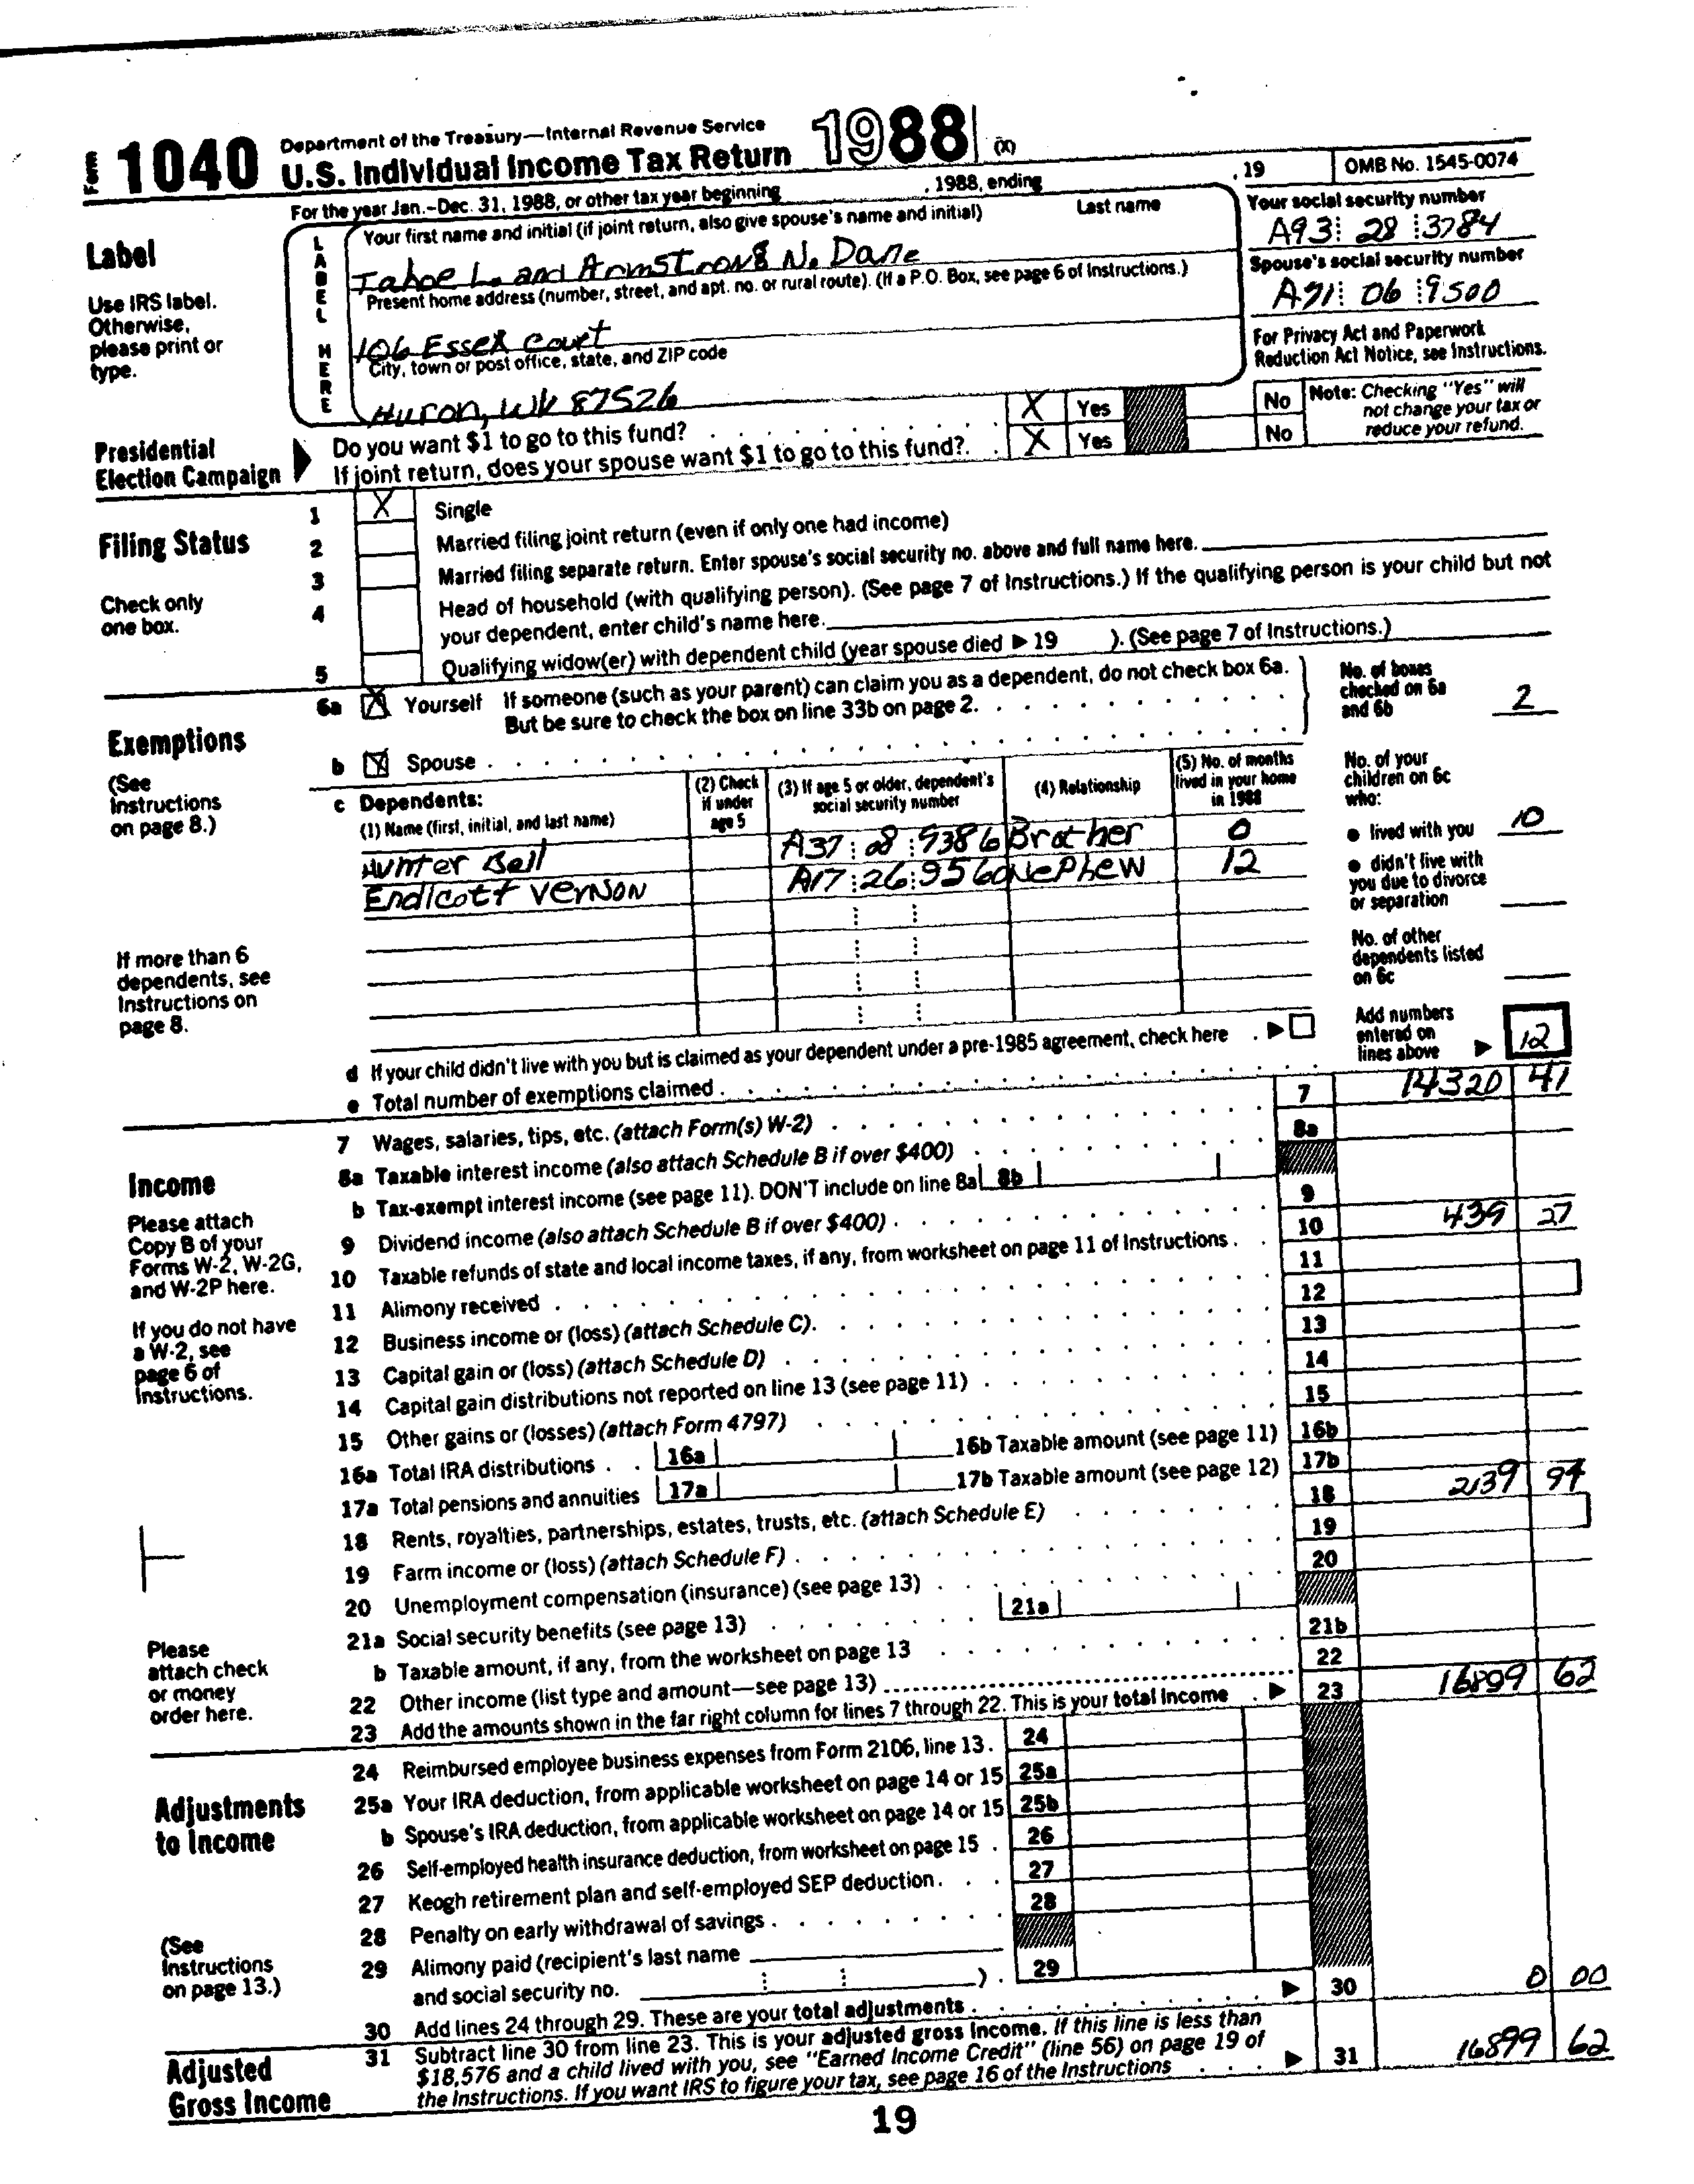 Form 1040 Department of the Treasury—Internal Revenue Service
U.S. Individual Income Tax Return 1988 (X)
For the year Jan.-Dec. 31, 1988, or other tax year beginning , 1988, ending , 19 OMB No. 1545-0074
Label
Use IRS label.
Otherwise,
please print or
type.
LABEL HERE
Your first name and initial (if joint return, also give spouse's name and initial) Last name
Tahoe L. and Armstrong N. Dane
Your social security number
A93 28 3784
Present home address (number, street, and apt. no. or rural route). (If a P.O. Box, see page 6 of Instructions.)
106 Essex Court
Spouse's social security number
A71 06 9500
City, town or post office, state, and ZIP code
Huron, WV 87526
For Privacy Act and Paperwork
Reduction Act Notice, see Instructions.
Presidential
Election Campaign
Do you want $1 to go to this fund? X Yes No
If joint return, does your spouse want $1 to go to this fund? X Yes No
Note: Checking "Yes" will
not change your tax or
reduce your refund.
Filing Status
Check only
one box.
1 X Single
2 Married filing joint return (even if only one had income)
3 Married filing separate return. Enter spouse's social security no. above and full name here.
4 Head of household (with qualifying person). (See page 7 of Instructions.) If the qualifying person is your child but not
your dependent, enter child's name here.
5 Qualifying widow(er) with dependent child (year spouse died ▶ 19 ). (See page 7 of Instructions.)
Exemptions
(See
Instructions
on page 8.)
6a X Yourself If someone (such as your parent) can claim you as a dependent, do not check box 6a.
But be sure to check the box on line 33b on page 2.
b X Spouse
No. of boxes
checked on 6a
and 6b 2
c Dependents:
(1) Name (first, initial, and last name)
(2) Check
if under
age 5
(3) If age 5 or older, dependent's
social security number
(4) Relationship
(5) No. of months
lived in your home
in 1988
Hunter Bell A37 08 9386 Brother 0
Endicott Vernon A17 26 9560 Nephew 12
If more than 6
dependents, see
Instructions on
page 8.
No. of your
children on 6c
who:
● lived with you 10
● didn't live with
you due to divorce
or separation
No. of other
dependents listed
on 6c
d If your child didn't live with you but is claimed as your dependent under a pre-1985 agreement, check here ▶
e Total number of exemptions claimed
Add numbers
entered on
lines above ▶ 12
Income
Please attach
Copy B of your
Forms W-2, W-2G,
and W-2P here.
If you do not have
a W-2, see
page 6 of
Instructions.
Please
attach check
or money
order here.
7 Wages, salaries, tips, etc. (attach Form(s) W-2) 7 14320 41
8a Taxable interest income (also attach Schedule B if over $400) 8a
b Tax-exempt interest income (see page 11). DON'T include on line 8a 8b
9 Dividend income (also attach Schedule B if over $400) 9
10 Taxable refunds of state and local income taxes, if any, from worksheet on page 11 of Instructions 10 439 27
11 Alimony received 11
12 Business income or (loss) (attach Schedule C) 12
13 Capital gain or (loss) (attach Schedule D) 13
14 Capital gain distributions not reported on line 13 (see page 11) 14
15 Other gains or (losses) (attach Form 4797) 15
16a Total IRA distributions 16a 16b Taxable amount (see page 11) 16b
17a Total pensions and annuities 17a 17b Taxable amount (see page 12) 17b
18 Rents, royalties, partnerships, estates, trusts, etc. (attach Schedule E) 18 2139 94
19 Farm income or (loss) (attach Schedule F) 19
20 Unemployment compensation (insurance) (see page 13) 20
21a Social security benefits (see page 13) 21a
b Taxable amount, if any, from the worksheet on page 13 21b
22 Other income (list type and amount—see page 13) 22
23 Add the amounts shown in the far right column for lines 7 through 22. This is your total income ▶ 23 16899 62
Adjustments
to Income
(See
Instructions
on page 13.)
24 Reimbursed employee business expenses from Form 2106, line 13 24
25a Your IRA deduction, from applicable worksheet on page 14 or 15 25a
b Spouse's IRA deduction, from applicable worksheet on page 14 or 15 25b
26 Self-employed health insurance deduction, from worksheet on page 15 26
27 Keogh retirement plan and self-employed SEP deduction 27
28 Penalty on early withdrawal of savings 28
29 Alimony paid (recipient's last name
and social security no. ) 29
30 Add lines 24 through 29. These are your total adjustments ▶ 30 0 00
Adjusted
Gross Income
31 Subtract line 30 from line 23. This is your adjusted gross income. If this line is less than
$18,576 and a child lived with you, see "Earned Income Credit" (line 56) on page 19 of
the Instructions. If you want IRS to figure your tax, see page 16 of the Instructions ▶ 31 16899 62
19